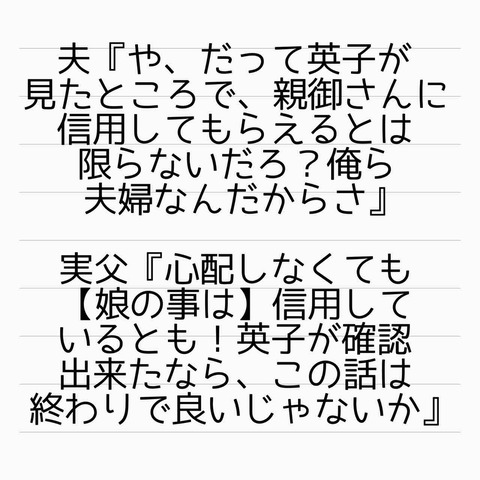 夫『や、だって英子が
見たところで、親御さんに
信用してもらえるとは
限らないだろ？俺ら
夫婦なんだからさ』
実父『心配しなくても
【娘の事は】信用して
いるとも！英子が確認
出来たなら、この話は
終わりで良いじゃないか』